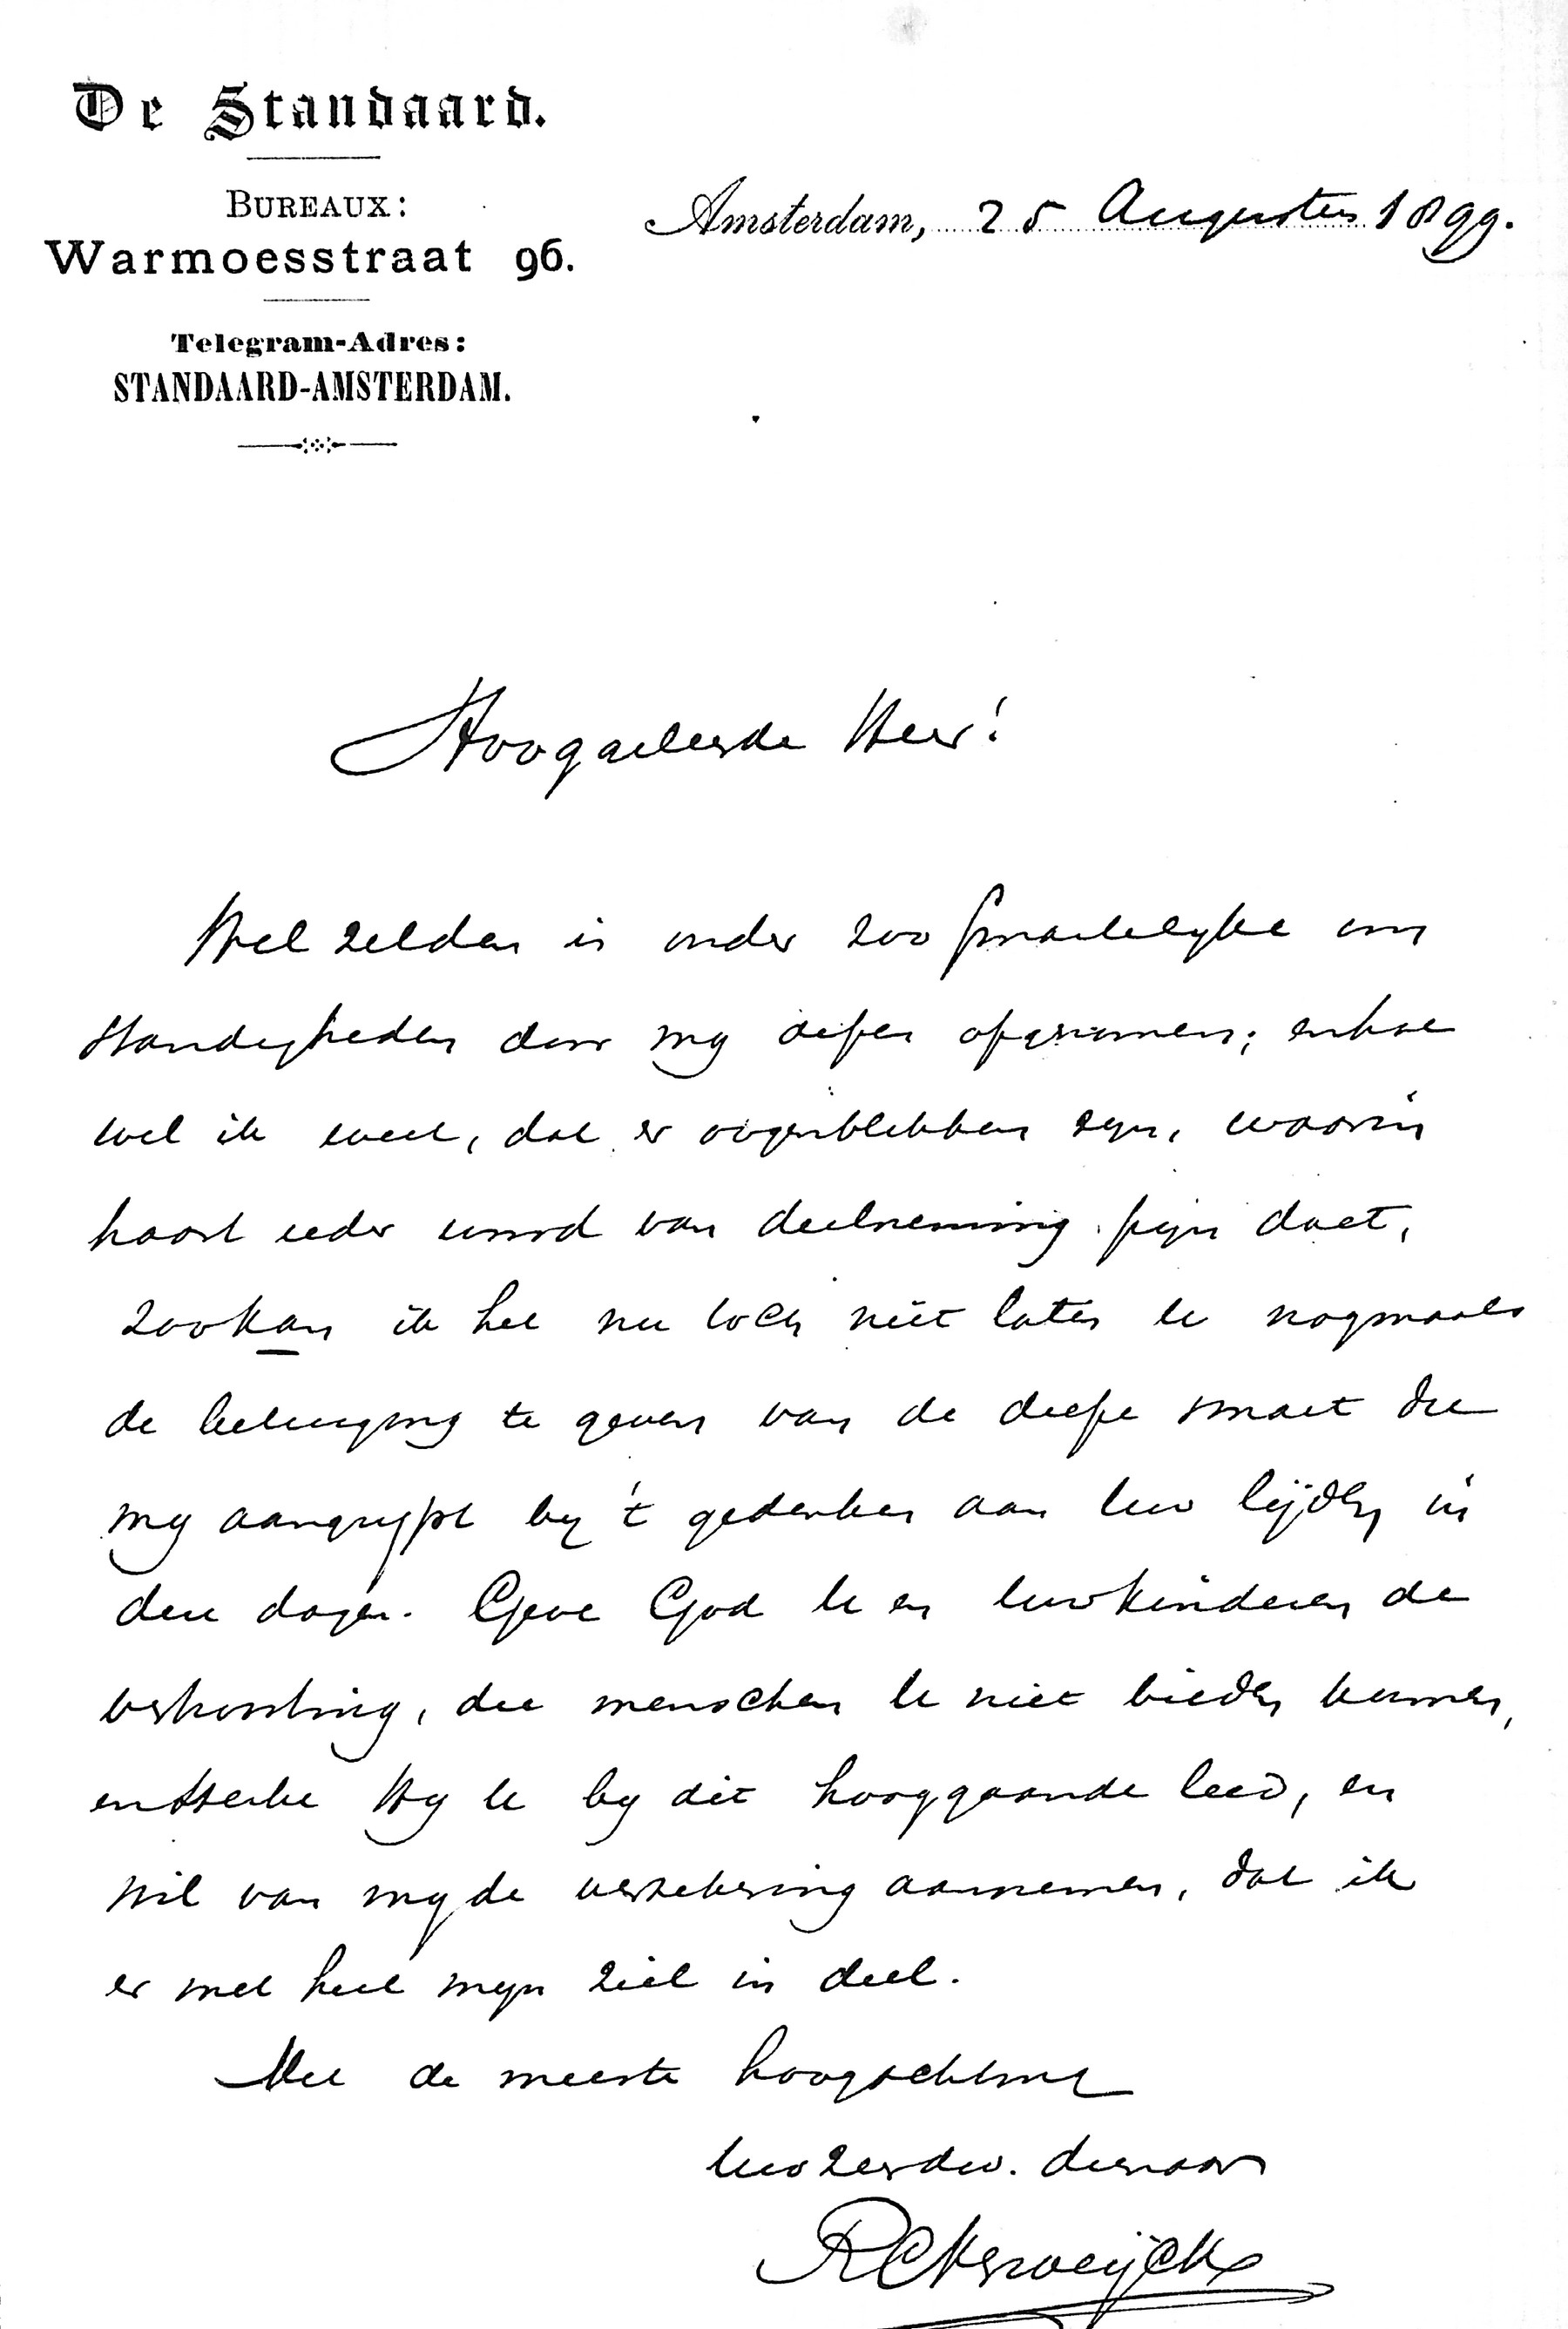 De Standaard.
BUREAUX:
Warmoesstraat 96.
Telegram-Adres:
STANDAARD-AMSTERDAM.
Amsterdam, 25 Augustus 1899.
Hooggeleerde Heer!
Wel zelden is onder zoo smartelyke om
standigheden door my de pen opgenomen; en hoe
wel ik weet, dat er oogenblikken zyn, waarin
haast ieder woord van deelneming pyn doet,
zoo kan ik het nu toch niet laten U nogmaals
de betuiging te geven van de diepe smart die
my aangrypt by 't gedenken aan Uw lijden in
deze dagen. Geve God U en Uw kinderen de
vertroosting, die menschen U niet bieden kunnen,
en sterke Hy U by dit hooggaande leed, en
wil van my de verzekering aannemen, dat ik
er met heel myn ziel in deel.
Met de meeste hoogachting
Uw zeer dw. dienaar
RCVerweyck